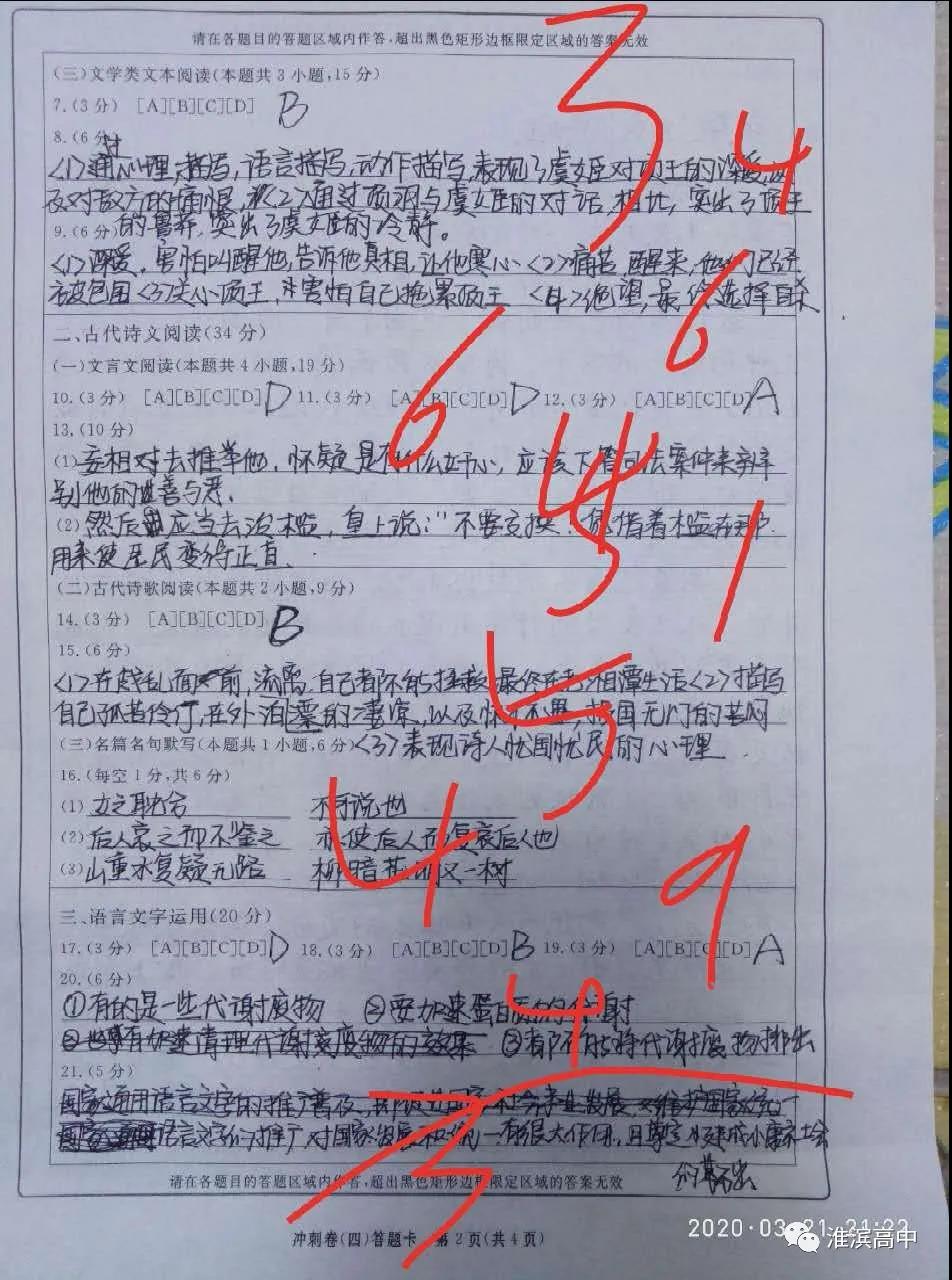 请在各题目的答题区域内作答,超出黑色矩形边框限定区域的答案无效
(三)文学类文本阅读(本题共3小题,15分)
7.(3分) [A][B][C][D] B
8.(6分)
<1>通过心理描写,语言描写,动作描写,表现了虞姬对项王的深爱,以
及对敌方的痛恨 <2>通过项羽与虞姬的对话,相比,突出了项王
的鲁莽,突出了虞姬的冷静。
9.(6分)
<1>深爱,害怕叫醒他,告诉他真相,让他寒心<2>痛苦,醒来,他们已经
被包围<3>关心项王,害怕自己拖累项王 <4>绝望,最终选择自杀
二、古代诗文阅读(34分)
(一)文言文阅读(本题共4小题,19分)
10.(3分) [A][B][C][D] D 11.(3分) [A][B][C][D] D 12.(3分) [A][B][C][D] A
13.(10分)
(1)妄相对去推举他,怀疑是有什么奸心,应该下看司法案件来辨
别他的善与恶.
(2)然后应当去治槛,皇上说:"不要交换!
用来使居民变得正直.
(二)古代诗歌阅读(本题共2小题,9分)
14.(3分) [A][B][C][D] B
15.(6分)
<1>在战乱面前,流离,自己都不能拯救 最终在 湘潭生活<2>描写
自己孤苦伶仃,在外泊漂的凄凉,以及怀才不遇 报国无门的苦闷
<3>表现诗人忧国忧民的心理
(三)名篇名句默写(本题共1小题,6分)
16.(每空1分,共6分)
(1)女之耽兮 不可说也
(2)后人哀之却不鉴之 亦使后人而复哀后人也
(3)山重水复疑无路 柳暗花明又一树
三、语言文字运用(20分)
17.(3分) [A][B][C][D] D 18.(3分) [A][B][C][D] B 19.(3分) [A][B][C][D] A
20.(6分)
①有的是一些代谢废物 ②要加速蛋白质的代谢
③都不能将代谢废物排出
21.(5分)
语言文字的推广对国家发展和统一有很大作用,且奠定 建成小康社会
的基石出
请在各题目的答题区域内作答,超出黑色矩形边框限定区域的答案无效
冲刺卷(四)答题卡 第2页(共4页)
3
4
6
6
4
3
1
5
4
9
4
3
2020·03·21 21:22
淮滨高中